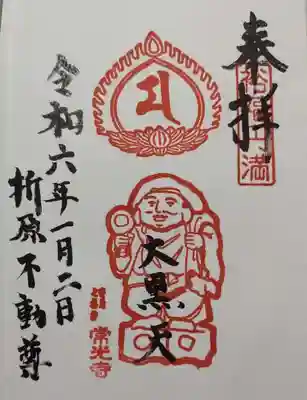 奉拝
裕福円満
大黒天
常光寺
令和六年一月二日
折原不動尊